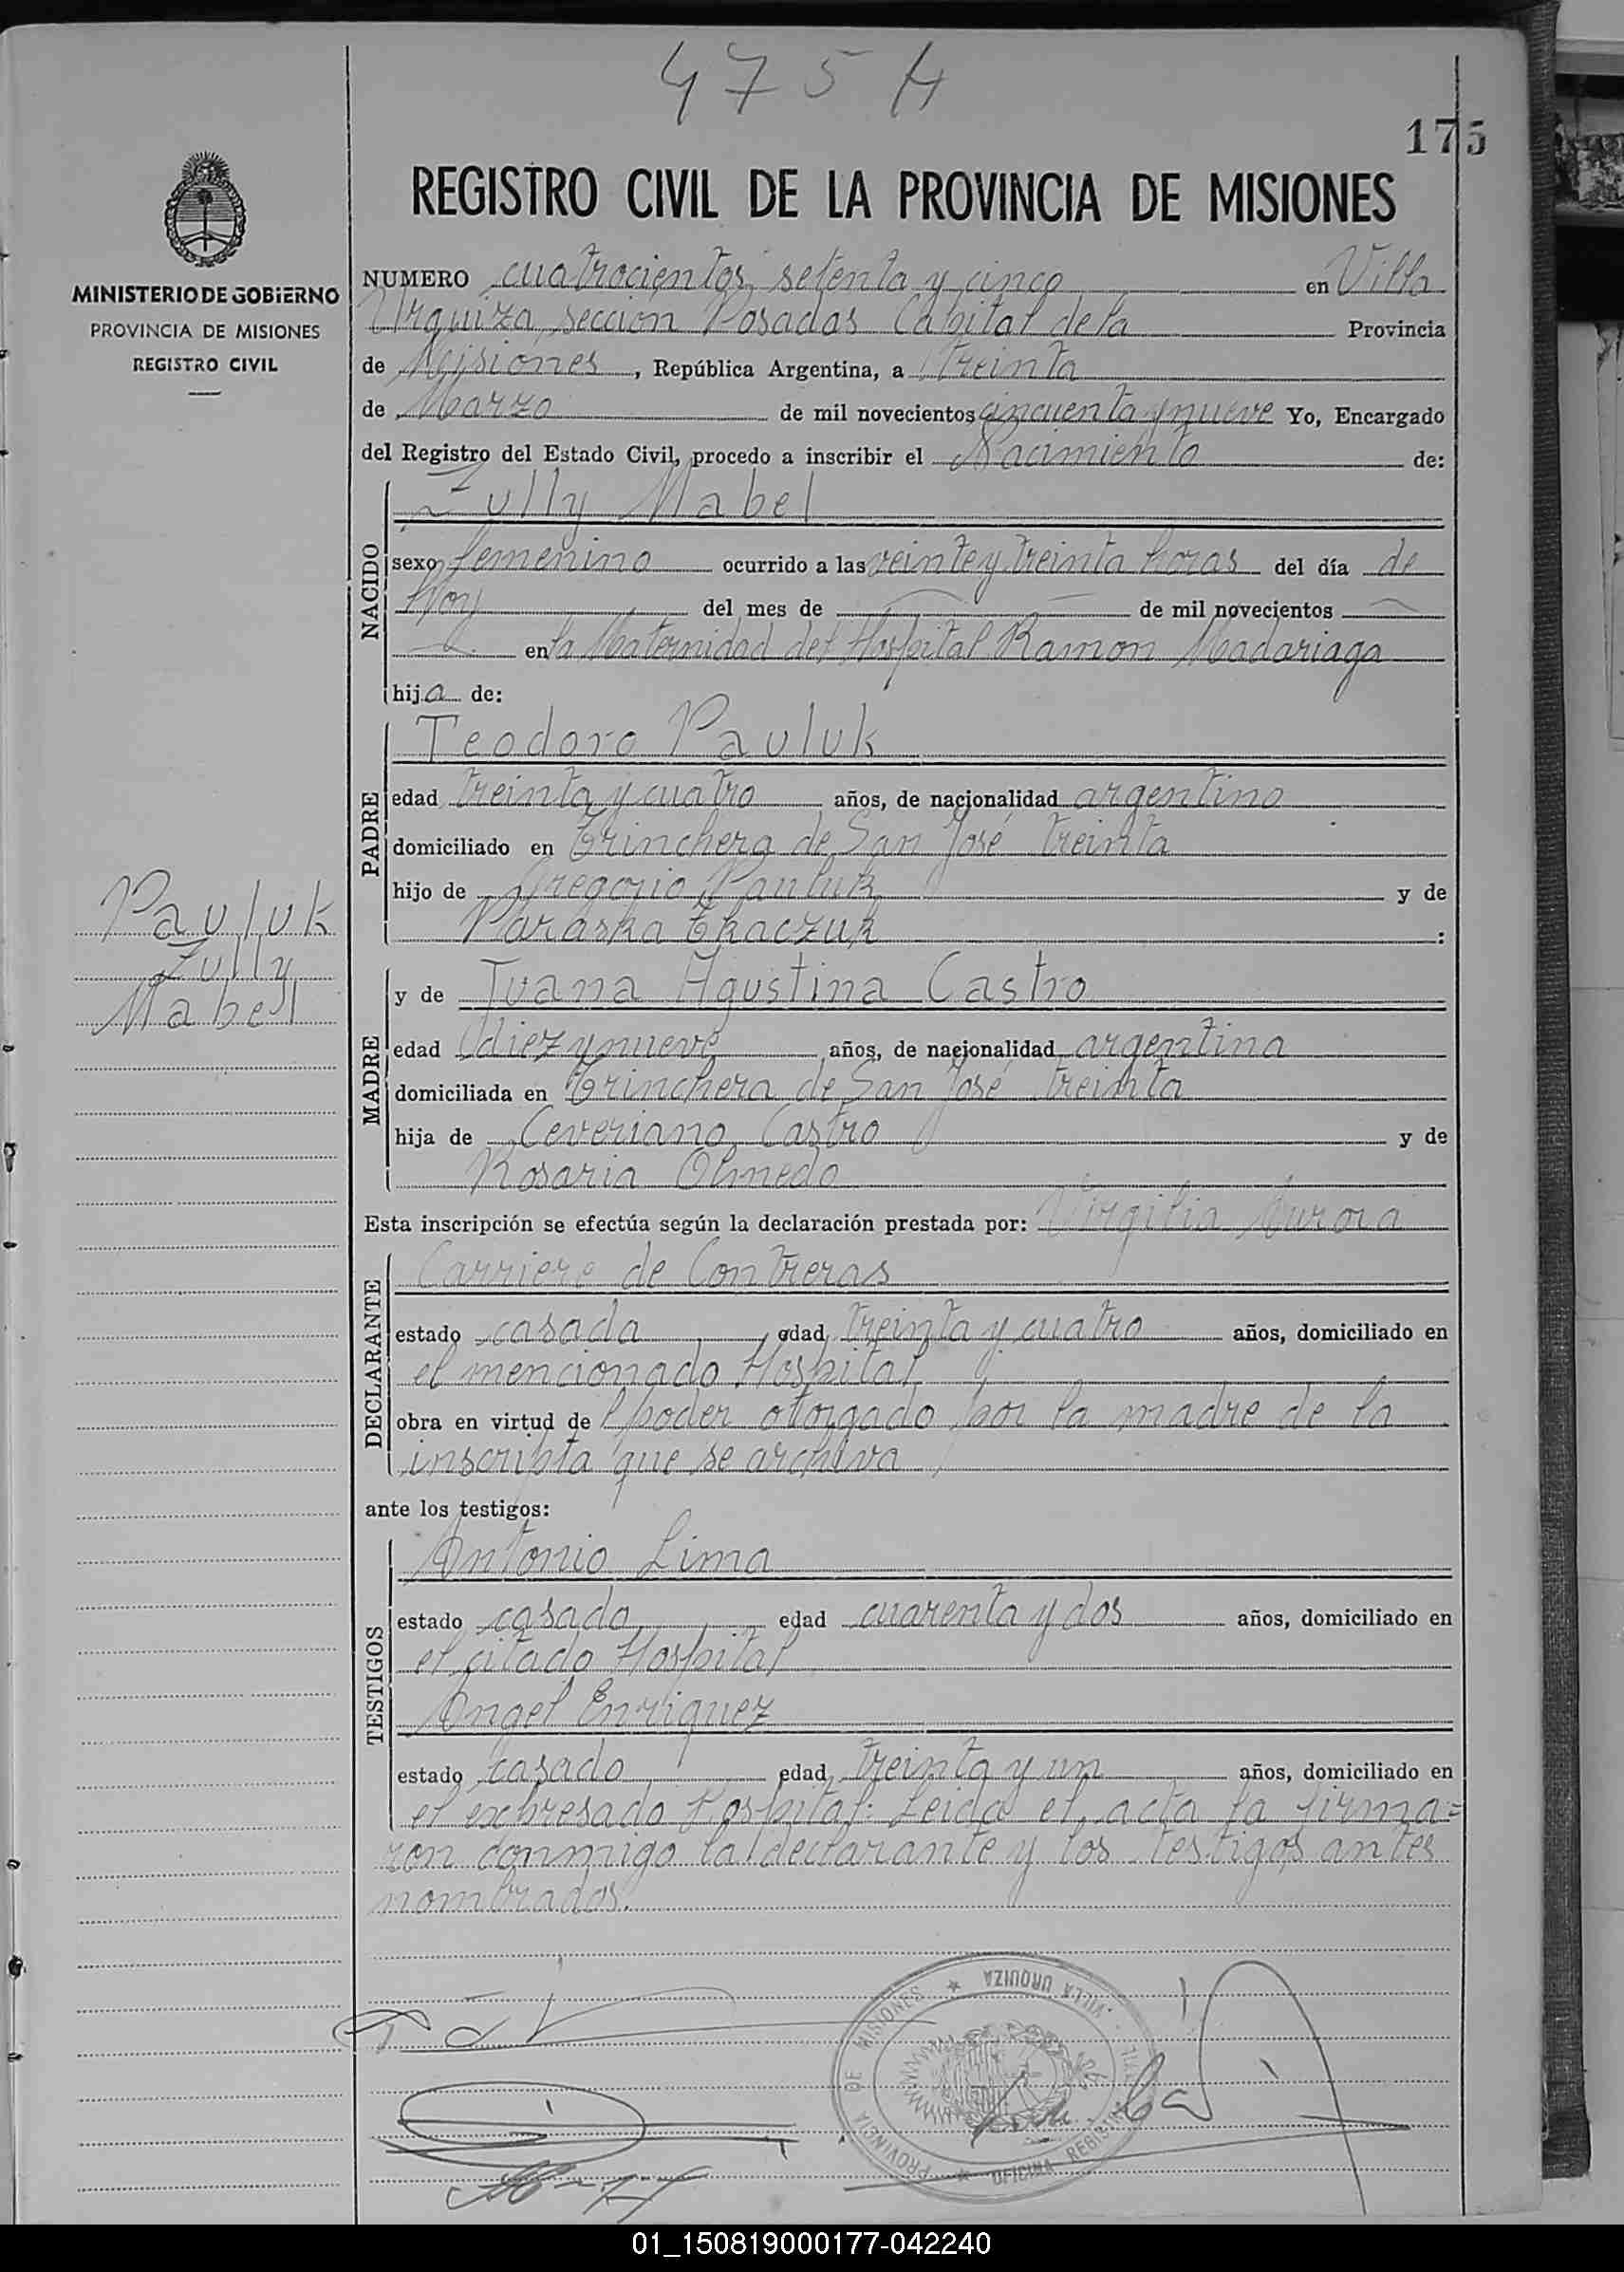 475 H
175
REGISTRO CIVIL DE LA PROVINCIA DE MISIONES
MINISTERIO DE GOBIERNO
PROVINCIA DE MISIONES
REGISTRO CIVIL
NUMERO cuatrocientos setenta y cinco en Villa
Urquiza, sección Posadas Capital de la Provincia
de Misiones, República Argentina, a treinta
de Marzo de mil novecientos cincuenta y nueve Yo, Encargado
del Registro del Estado Civil, procedo a inscribir el Nacimiento de:
NACIDO
Zully Mabel
sexo femenino ocurrido a las veinte y treinta horas del día de
hoy del mes de de mil novecientos
en la Maternidad del Hospital Ramon Madariaga
hija de:
PADRE
Teodoro Pauluk
edad treinta y cuatro años, de nacionalidad argentino
domiciliado en Trinchera de San José treinta
hijo de Gregorio Pauluk y de
Paraska Tkaczuk :
Pauluk
Zully
Mabel
MADRE
y de Juana Agustina Castro
edad diez y nueve años, de nacionalidad argentina
domiciliada en Trinchera de San José treinta
hija de Ceveriano Castro y de
Rosaria Olmedo
Esta inscripción se efectúa según la declaración prestada por: Virgilia Aurora
DECLARANTE
Carriere de Contreras
estado casada, edad treinta y cuatro años, domiciliado en
el mencionado Hospital
obra en virtud de poder otorgado por la madre de la
inscripta que se archiva
ante los testigos:
TESTIGOS
Antonio Lima
estado casado edad cuarenta y dos años, domiciliado en
el citado Hospital
Angel Enriquez
estado casado edad treinta y un años, domiciliado en
el expresado Hospital: Leida el acta la firma=
ron conmigo la declarante y los testigos antes
nombrados.
PROVINCIA DE MISIONES ★ VILLA URQUIZA
OFICINA REGISTRO CIVIL
01_150819000177-042240